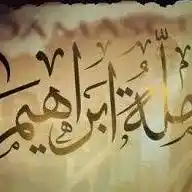 ملّة ابراهيم